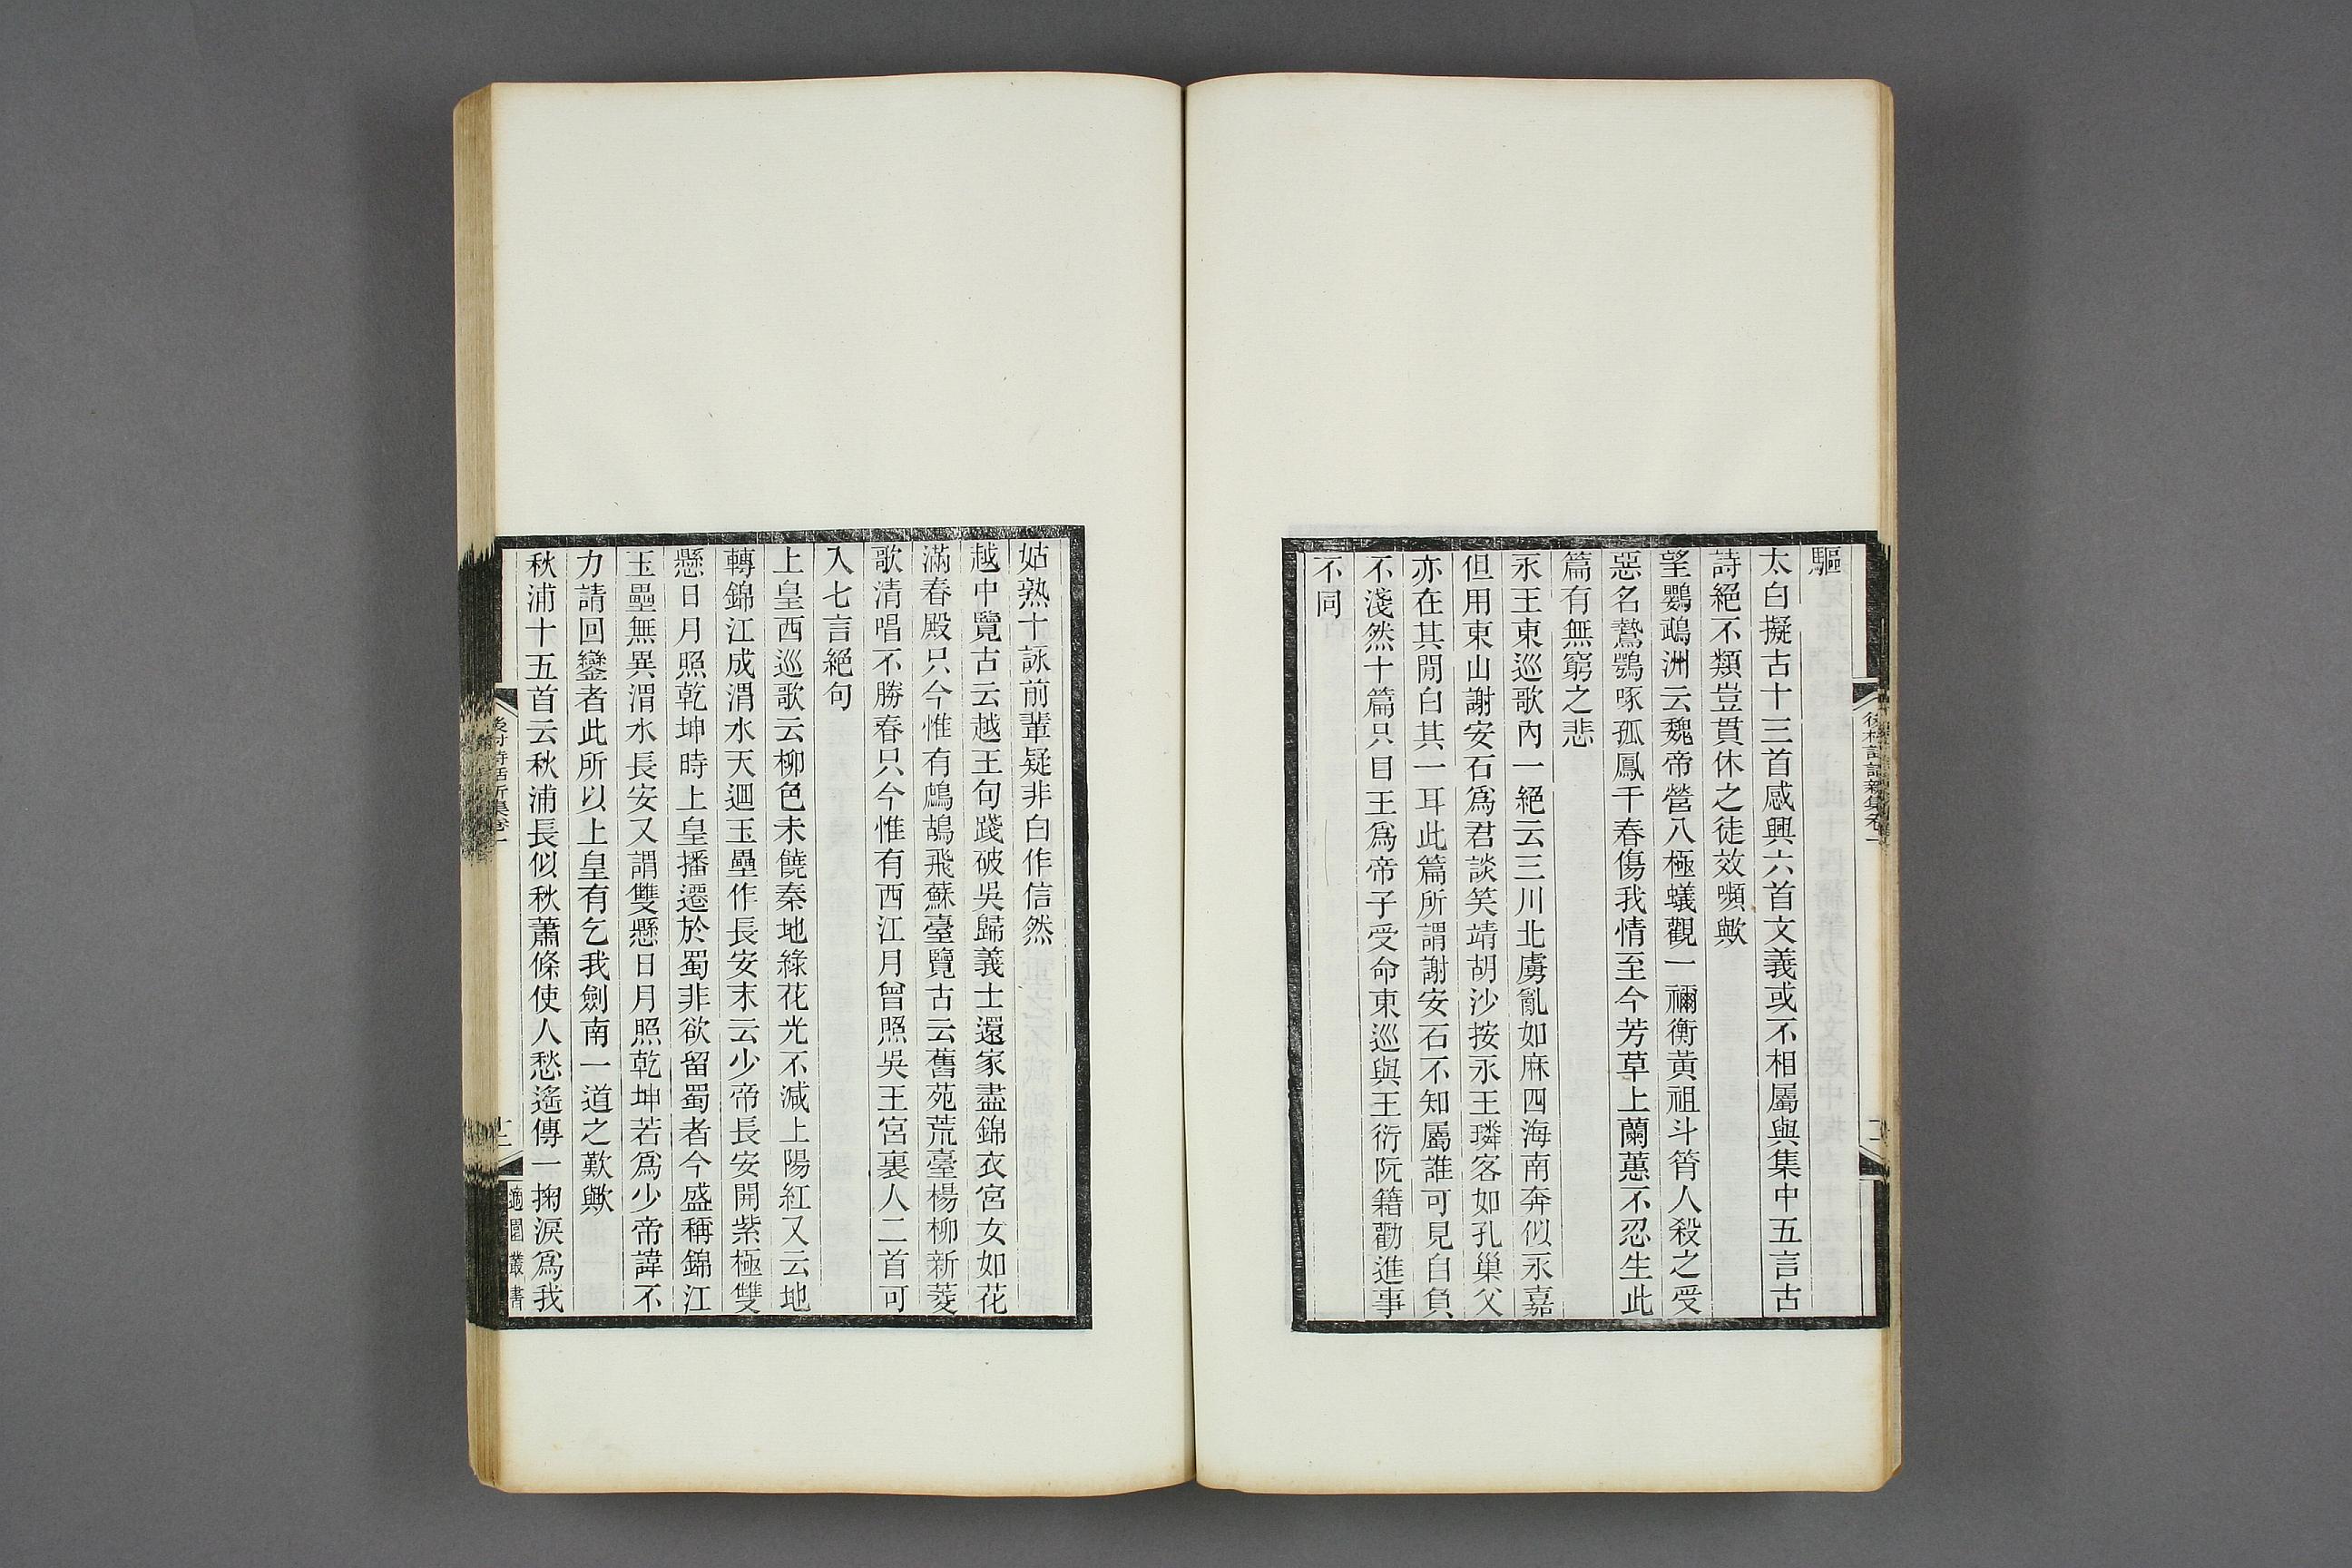 驅
太白擬古十三首感興六首文義或不相屬與集中五言古
詩絕不類豈貫休之徒效嚬歟
望鸚鵡洲云魏帝營八極蟻觀一禰衡黃祖斗筲人殺之受
惡名鷙鶚啄孤鳳千春傷我情至今芳草上蘭蕙不忍生此
篇有無窮之悲
永王東巡歌內一絕云三川北虜亂如麻四海南奔似永嘉
但用東山謝安石爲君談笑靖胡沙按永王璘客如孔巢父
亦在其閒白其一耳此篇所謂謝安石不知屬誰可見自負
不淺然十篇只目王爲帝子受命東巡與王衍阮籍勸進事
不同
姑熟十詠前輩疑非白作信然
越中覽古云越王句踐破吳歸義士還家盡錦衣宮女如花
滿春殿只今惟有鷓鴣飛蘇臺覽古云舊苑荒臺楊柳新菱
歌清唱不勝春只今惟有西江月曾照吳王宮裏人二首可
入七言絕句
上皇西巡歌云柳色未饒秦地綠花光不減上陽紅又云地
轉錦江成渭水天迴玉壘作長安末云少帝長安開紫極雙
懸日月照乾坤時上皇播遷於蜀非欲留蜀者今盛稱錦江
玉壘無異渭水長安又謂雙懸日月照乾坤若爲少帝諱不
力請回鑾者此所以上皇有乞我劍南一道之歎歟
秋浦十五首云秋浦長似秋蕭條使人愁遙傳一掬淚爲我
後村詩話新集卷一
十二
適園叢書